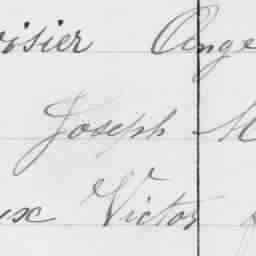 oisier Ange
Joseph M
ux Victor